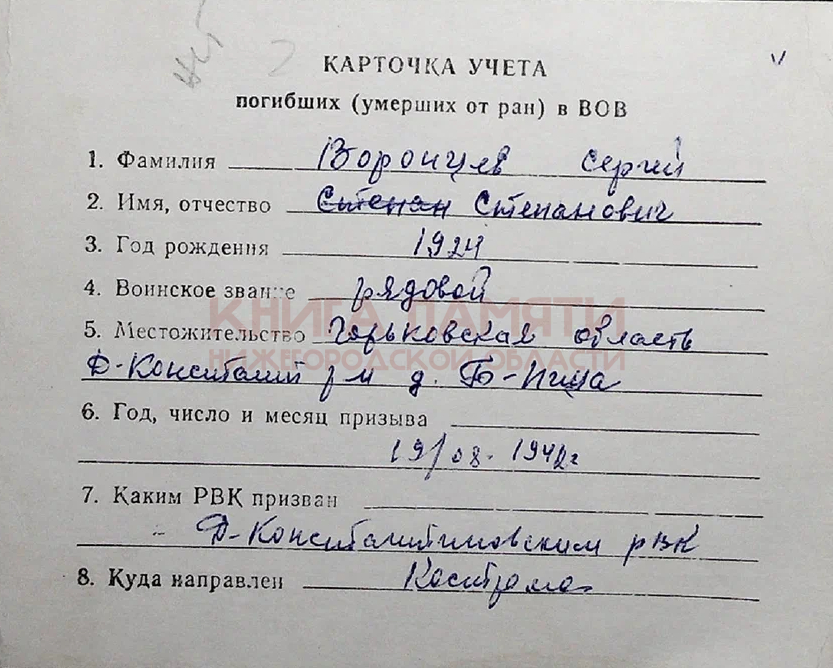 КАРТОЧКА УЧЕТА
погибших (умерших от ран) в ВОВ
1. Фамилия Воронцев Сергей
2. Имя, отчество Степан Степанович
3. Год рождения 1924
4. Воинское звание рядовой
КНИГА ПАМЯТИ
5. Местожительство Горьковская область
НИЖЕГОРОДСКОЙ ОБЛАСТИ
Д-Констант р-н д. Б-Пица
6. Год, число и месяц призыва
19/08. 1942г
7. Каким РВК призван
Д-Константиновским РВК
8. Куда направлен Кострома